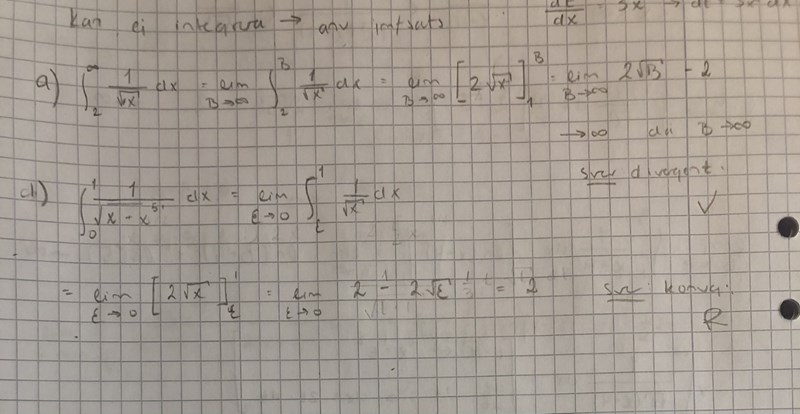 Kan ej integrera → anv jmfsats
dt/dx = 3x → dt = 3x dx
a) ∫_2^∞ 1/√x dx = lim_{B→∞} ∫_2^B 1/√x dx = lim_{B→∞} [2√x]_1^B = lim_{B→∞} 2√B - 2
→∞ då B→∞
svar divergent.
V
d) ∫_0^1 1/√(x-x^5) dx = lim_{ε→0} ∫_ε^1 1/√x dx
= lim_{ε→0} [2√x]_ε^1 = lim_{ε→0} 2 - 2√ε = 2 svar: konv.
R